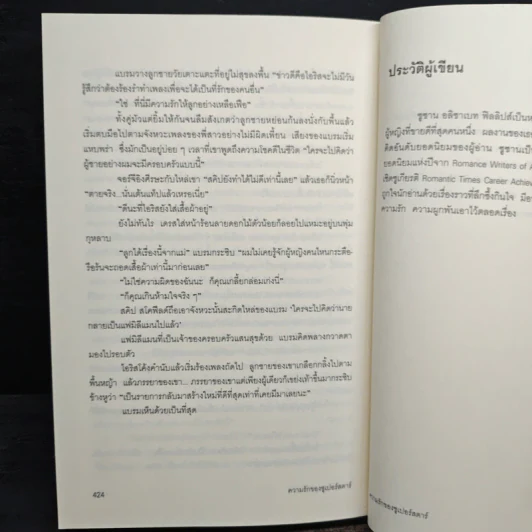 แบรมวางลูกชายวัยเตาะแตะที่อยู่ไม่สุขลงพื้น “ข่าวดีคือไอริสจะไม่มีวัน
รู้สึกว่าต้องร้องรำทำเพลงเพื่อจะได้เป็นที่รักของคนอื่น”
“ใช่ ที่นี่มีความรักให้ลูกอย่างเหลือเฟือ”
ทั้งคู่มัวแต่ยิ้มให้กันจนลืมสังเกตว่าลูกชายหย่อนก้นลงนั่งกับพื้นแล้ว
เริ่มตบมือไปตามจังหวะเพลงของพี่สาวอย่างไม่มีผิดเพี้ยน เสียงของแบรมเริ่ม
แหบพร่า ซึ่งมักเป็นอยู่บ่อย ๆ เวลาที่เขาพูดถึงความโชคดีในชีวิต “ใครจะไปคิดว่า
ผู้ชายอย่างผมจะมีครอบครัวแบบนี้”
จอร์จีอิงศีรษะกับไหล่เขา “สคิปยังทำได้ไม่ดีเท่านี้เลย” แล้วเธอก็นิ่วหน้า
“ตายจริง..นั่นเต้นแท็ปแล้วเหรอเนี่ย”
“ดีนะที่ไอริสยังใส่เสื้อผ้าอยู่”
ยังไม่ทันไร เดรสใส่หน้าร้อนลายดอกไม้ตัวน้อยก็ลอยไปแหมะอยู่บนพุ่ม
กุหลาบ
“ลูกได้เรื่องนี้จากแม่” แบรมกระซิบ “ผมไม่เคยรู้จักผู้หญิงคนไหนกระตือ-
รือร้นจะถอดเสื้อผ้าเท่านี้มาก่อนเลย”
“ไม่ใช่ความผิดของฉันนะ ก็คุณเกลี้ยกล่อมเก่งนี่”
“ก็คุณเกินห้ามใจจริง ๆ”
สคิป สโคฟีลด์ถือเอาจังหวะนั้นสะกิดไหล่ของแบรม ‘ใครจะไปคิดว่านาย
กลายเป็นแฟมิลีแมนไปแล้ว’
แฟมิลีแมนที่เป็นเจ้าของครอบครัวแสนสุขด้วย แบรมคิดพลางกวาดตา
มองไปรอบตัว
ไอริสโค้งคำนับแล้วเริ่มร้องเพลงถัดไป ลูกชายของเขาเกลือกกลิ้งไปตาม
พื้นหญ้า แล้วภรรยาของเขา... ภรรยาของเขาแต่เพียงผู้เดียวก็เขย่งเท้าขึ้นมากระซิบ
ข้างหูว่า “เป็นรายการกลับมาสร้างใหม่ที่ดีที่สุดเท่าที่เคยมีมาเลยนะ”
แบรมเห็นด้วยเป็นที่สุด
424
ความรักของซูเปอร์สตาร์
ประวัติผู้เขียน
ซูซาน อลิซาเบท ฟิลลิปส์เป็นหน
ผู้หญิงที่ขายดีที่สุดคนหนึ่ง ผลงานของเธอ
ติดอันดับยอดนิยมของผู้อ่าน ซูซานเป็
ยอดนิยมแห่งปีจาก Romance Writers of A
เชิดชูเกียรติ Romantic Times Career Achiev
ถูกใจนักอ่านด้วยเรื่องราวที่ลึกซึ้งกินใจ มีอ
ความรัก ความผูกพันเอาไว้ตลอดเรื่อง
ความรักของซูเปอร์สตาร์